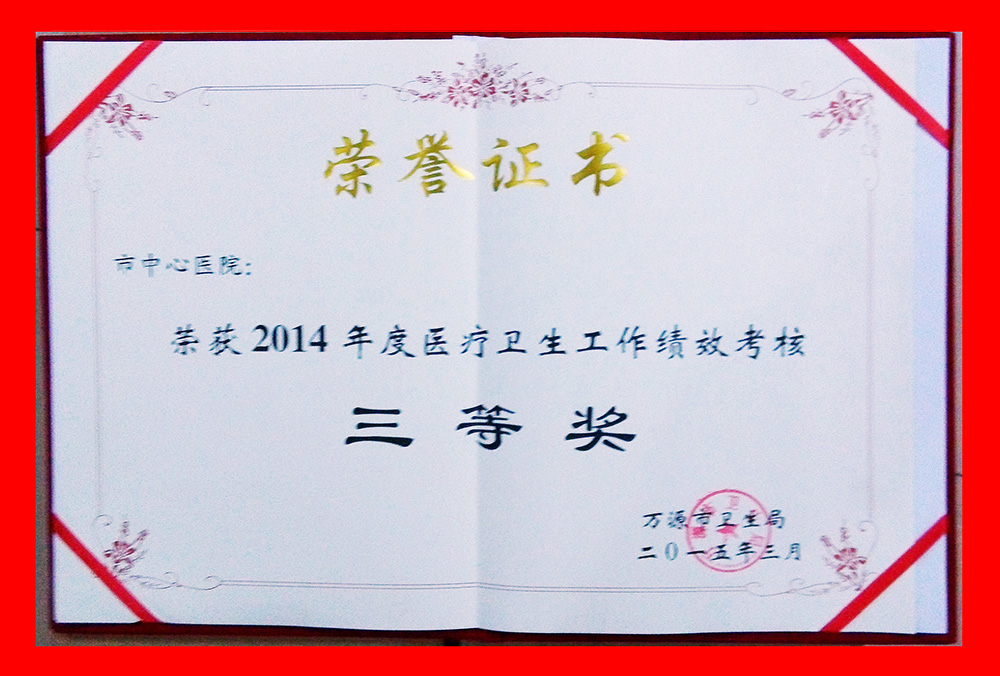 荣誉证书
市中心医院：
荣获2014年度医疗卫生工作绩效考核
三等奖
万源市卫生局
二0一五年三月